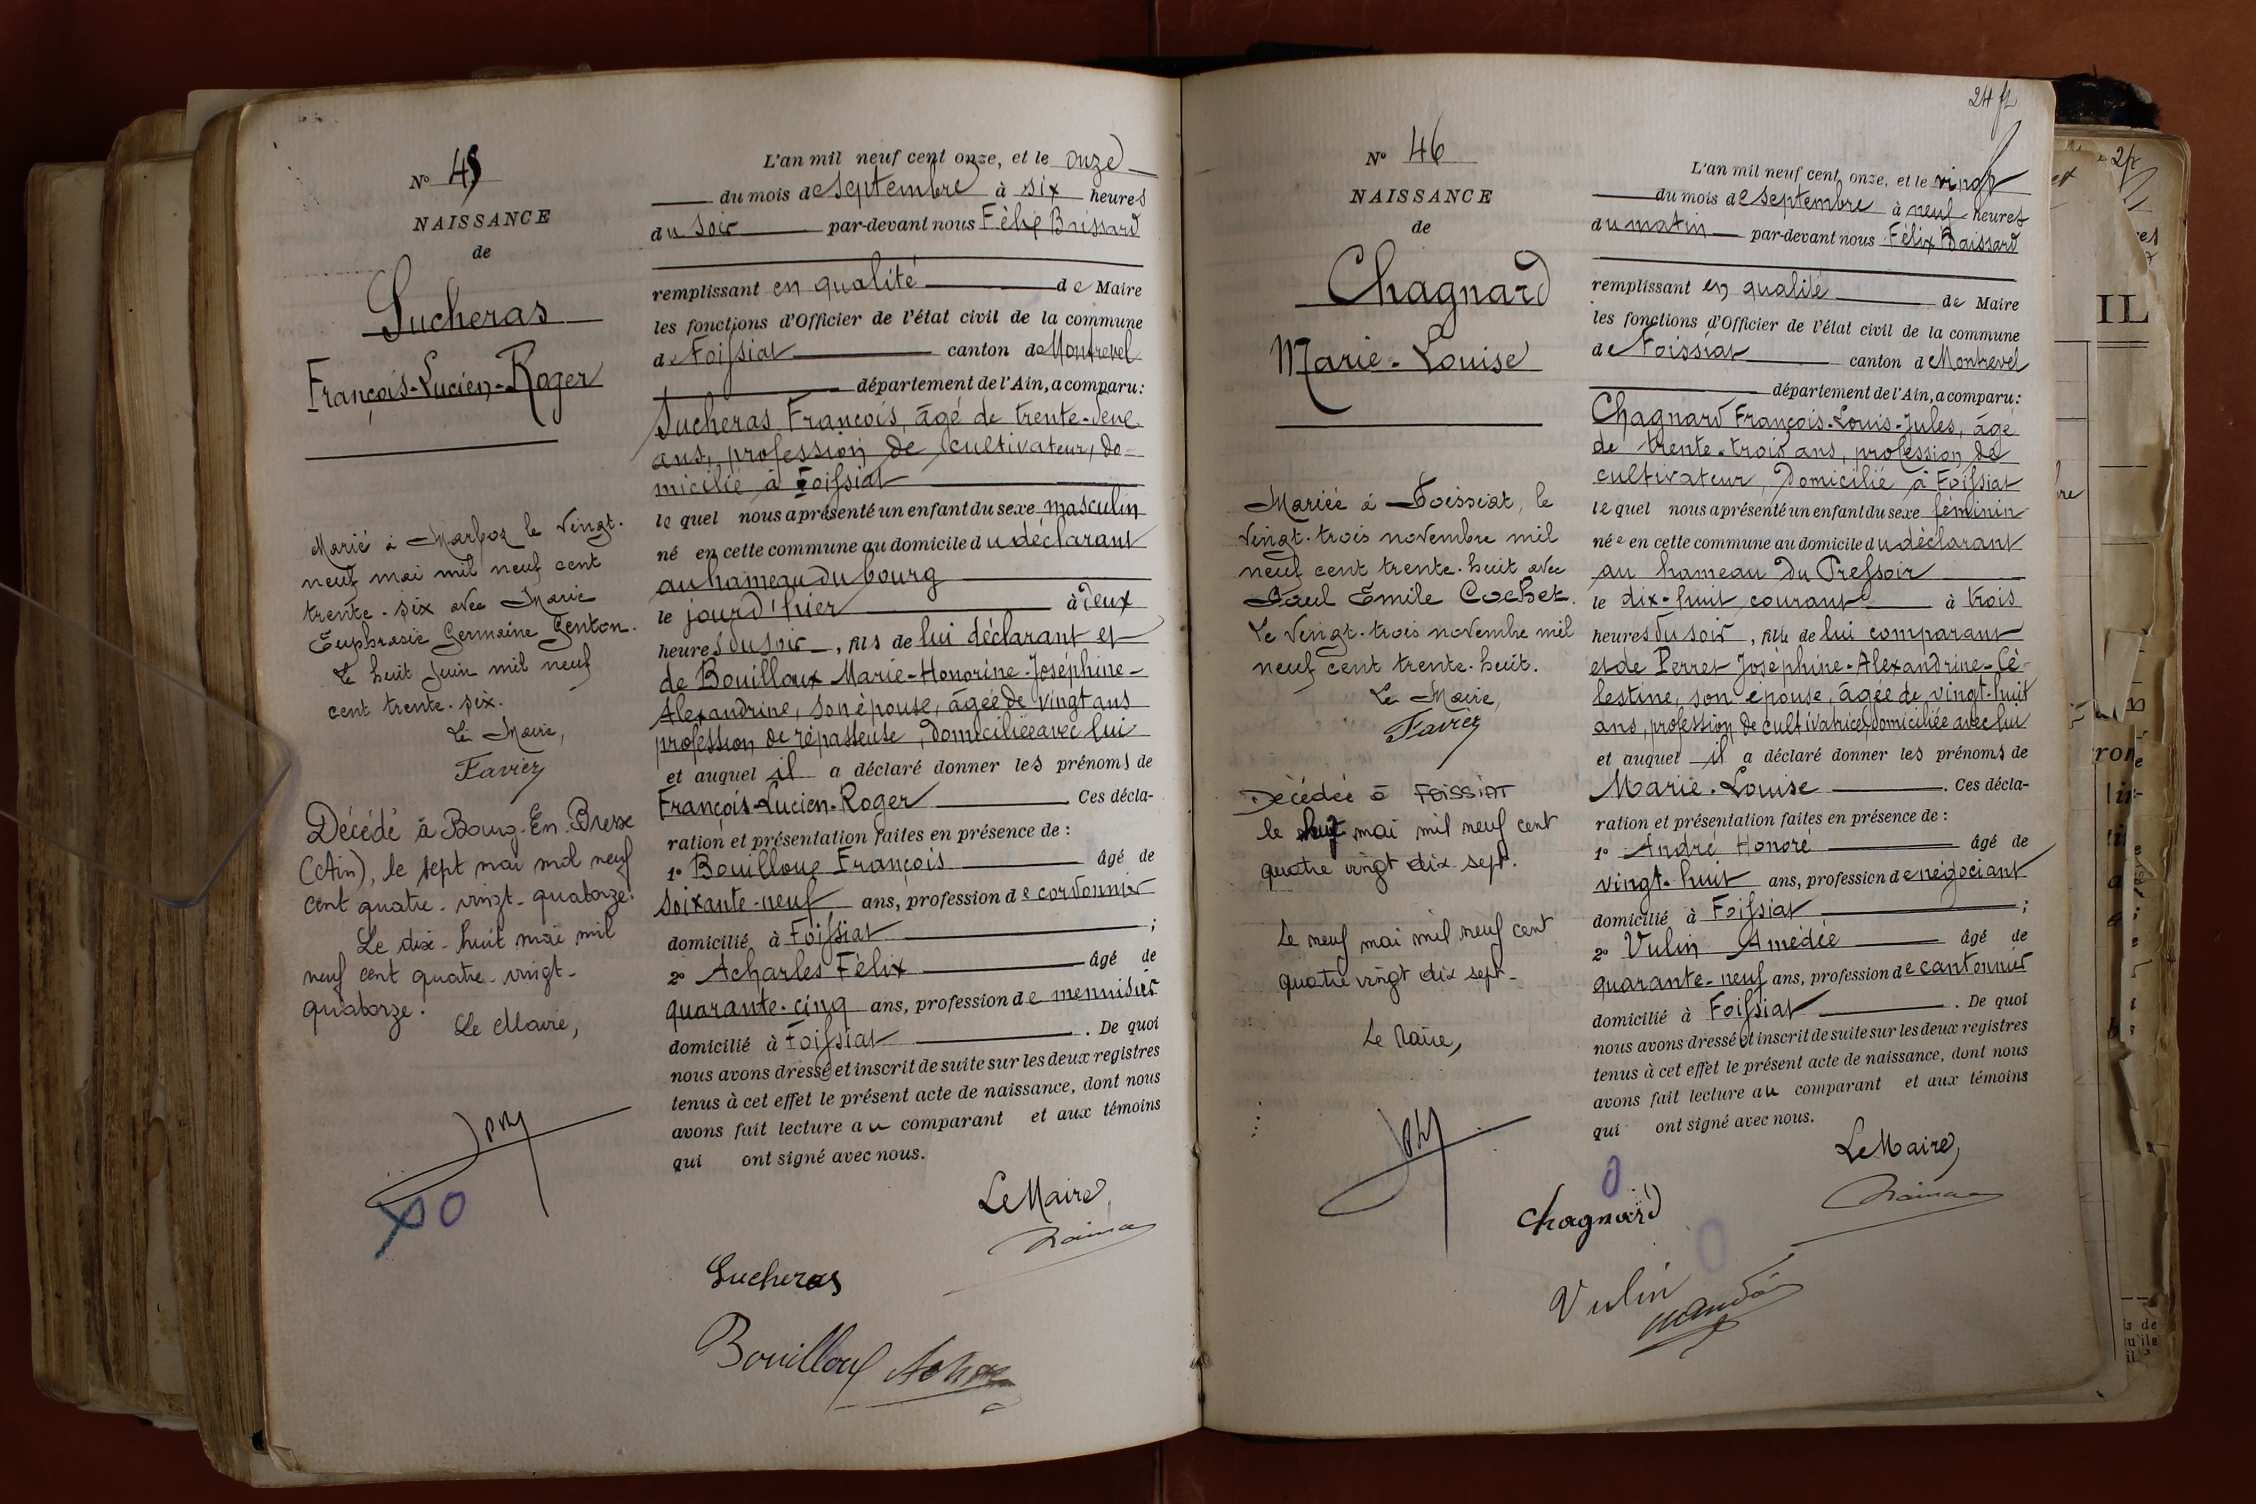 N° 45
NAISSANCE
de
Sucheras
François-Lucien-Roger
Marié à Marboz le vingt-
neuf mai mil neuf cent
trente-six avec Marie
Euphrasie Germaine Genton.
Le huit Juin mil neuf
cent trente-six.
Le Maire,
Favier
Décédé à Bourg-En-Bresse
(Ain), le sept mai mil neuf
cent quatre-vingt-quatorze.
Le dix-huit mai mil
neuf cent quatre-vingt-
quatorze.
Le Maire,
L'an mil neuf cent onze, et le onze
du mois de septembre à six heures
du soir par-devant nous Félix Baissard
remplissant en qualité de Maire
les fonctions d'Officier de l'état civil de la commune
de Foissiat canton de Montrevel
département de l'Ain, a comparu:
Sucheras François, âgé de trente-deux
ans, profession de cultivateur, do-
micilié à Foissiat
lequel nous a présenté un enfant du sexe masculin
né en cette commune au domicile du déclarant
au hameau du bourg
le jourd'hier à deux
heures du soir, fils de lui déclarant et
de Bouilloux Marie-Honorine-Joséphine-
Alexandrine, son épouse, âgée de vingt ans
profession de repasseuse, domiciliée avec lui
et auquel il a déclaré donner les prénoms de
François-Lucien-Roger. Ces décla-
ration et présentation faites en présence de :
1° Bouilloux François âgé de
soixante-neuf ans, profession de cordonnier
domicilié à Foissiat ;
2° Acharles Félix âgé de
quarante-cinq ans, profession de menuisier
domicilié à Foissiat. De quoi
nous avons dressé et inscrit de suite sur les deux registres
tenus à cet effet le présent acte de naissance, dont nous
avons fait lecture au comparant et aux témoins
qui ont signé avec nous.
Le Maire,
Sucheras
Bouilloux
24
N° 46
NAISSANCE
de
Chagnard
Marie-Louise
Mariée à Foissiat, le
vingt-trois novembre mil
neuf cent trente-huit avec
Paul Emile Cochet.
Le vingt-trois novembre mil
neuf cent trente-huit.
Le Maire,
Favier
Décédée à FOISSIAT
le mai mil neuf cent
quatre vingt dix sept.
Le neuf mai mil neuf cent
quatre vingt dix sept-
Le Maire,
L'an mil neuf cent onze, et le vingt
du mois de septembre à neuf heures
du matin par-devant nous Félix Baissard
remplissant en qualité de Maire
les fonctions d'Officier de l'état civil de la commune
de Foissiat canton de Montrevel
département de l'Ain, a comparu:
Chagnard François-Louis-Jules, âgé
de trente-trois ans, profession de
cultivateur, domicilié à Foissiat
lequel nous a présenté un enfant du sexe féminin
née en cette commune au domicile du déclarant
au hameau du Pressoir
le dix-huit courant à trois
heures du soir, fille de lui comparant
et de Perret Joséphine-Alexandrine-Cé-
lestine, son épouse, âgée de vingt-huit
ans, profession de cultivatrice, domiciliée avec lui
et auquel il a déclaré donner les prénoms de
Marie-Louise. Ces décla-
ration et présentation faites en présence de :
1° André Honoré âgé de
vingt-huit ans, profession de négociant
domicilié à Foissiat ;
2° Vulin Amédée âgé de
quarante-neuf ans, profession de cantonnier
domicilié à Foissiat. De quoi
nous avons dressé et inscrit de suite sur les deux registres
tenus à cet effet le présent acte de naissance, dont nous
avons fait lecture au comparant et aux témoins
qui ont signé avec nous.
Le Maire,
Chagnard
Vulin